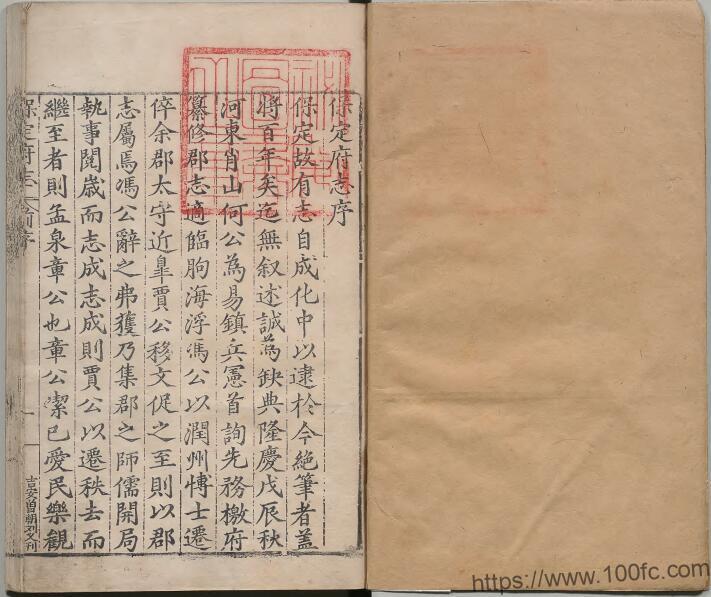 保定府志序
保定故有志自成化中以逮於今絶筆者盖
將百年矣迄無叙述誠為缺典隆慶戊辰秋
河東肖山何公為易鎮兵憲首詢先務檄府
纂修郡志適臨朐海浮馮公以潤州博士遷
倅余郡太守近臯賈公移文促之至則以郡
志屬焉馮公辭之弗獲乃集郡之師儒開局
執事閲歳而志成志成則賈公以遷秩去而
繼至者則孟泉章公也章公潔已愛民樂觀
保定府志 前序
一
https://www.100fc.com